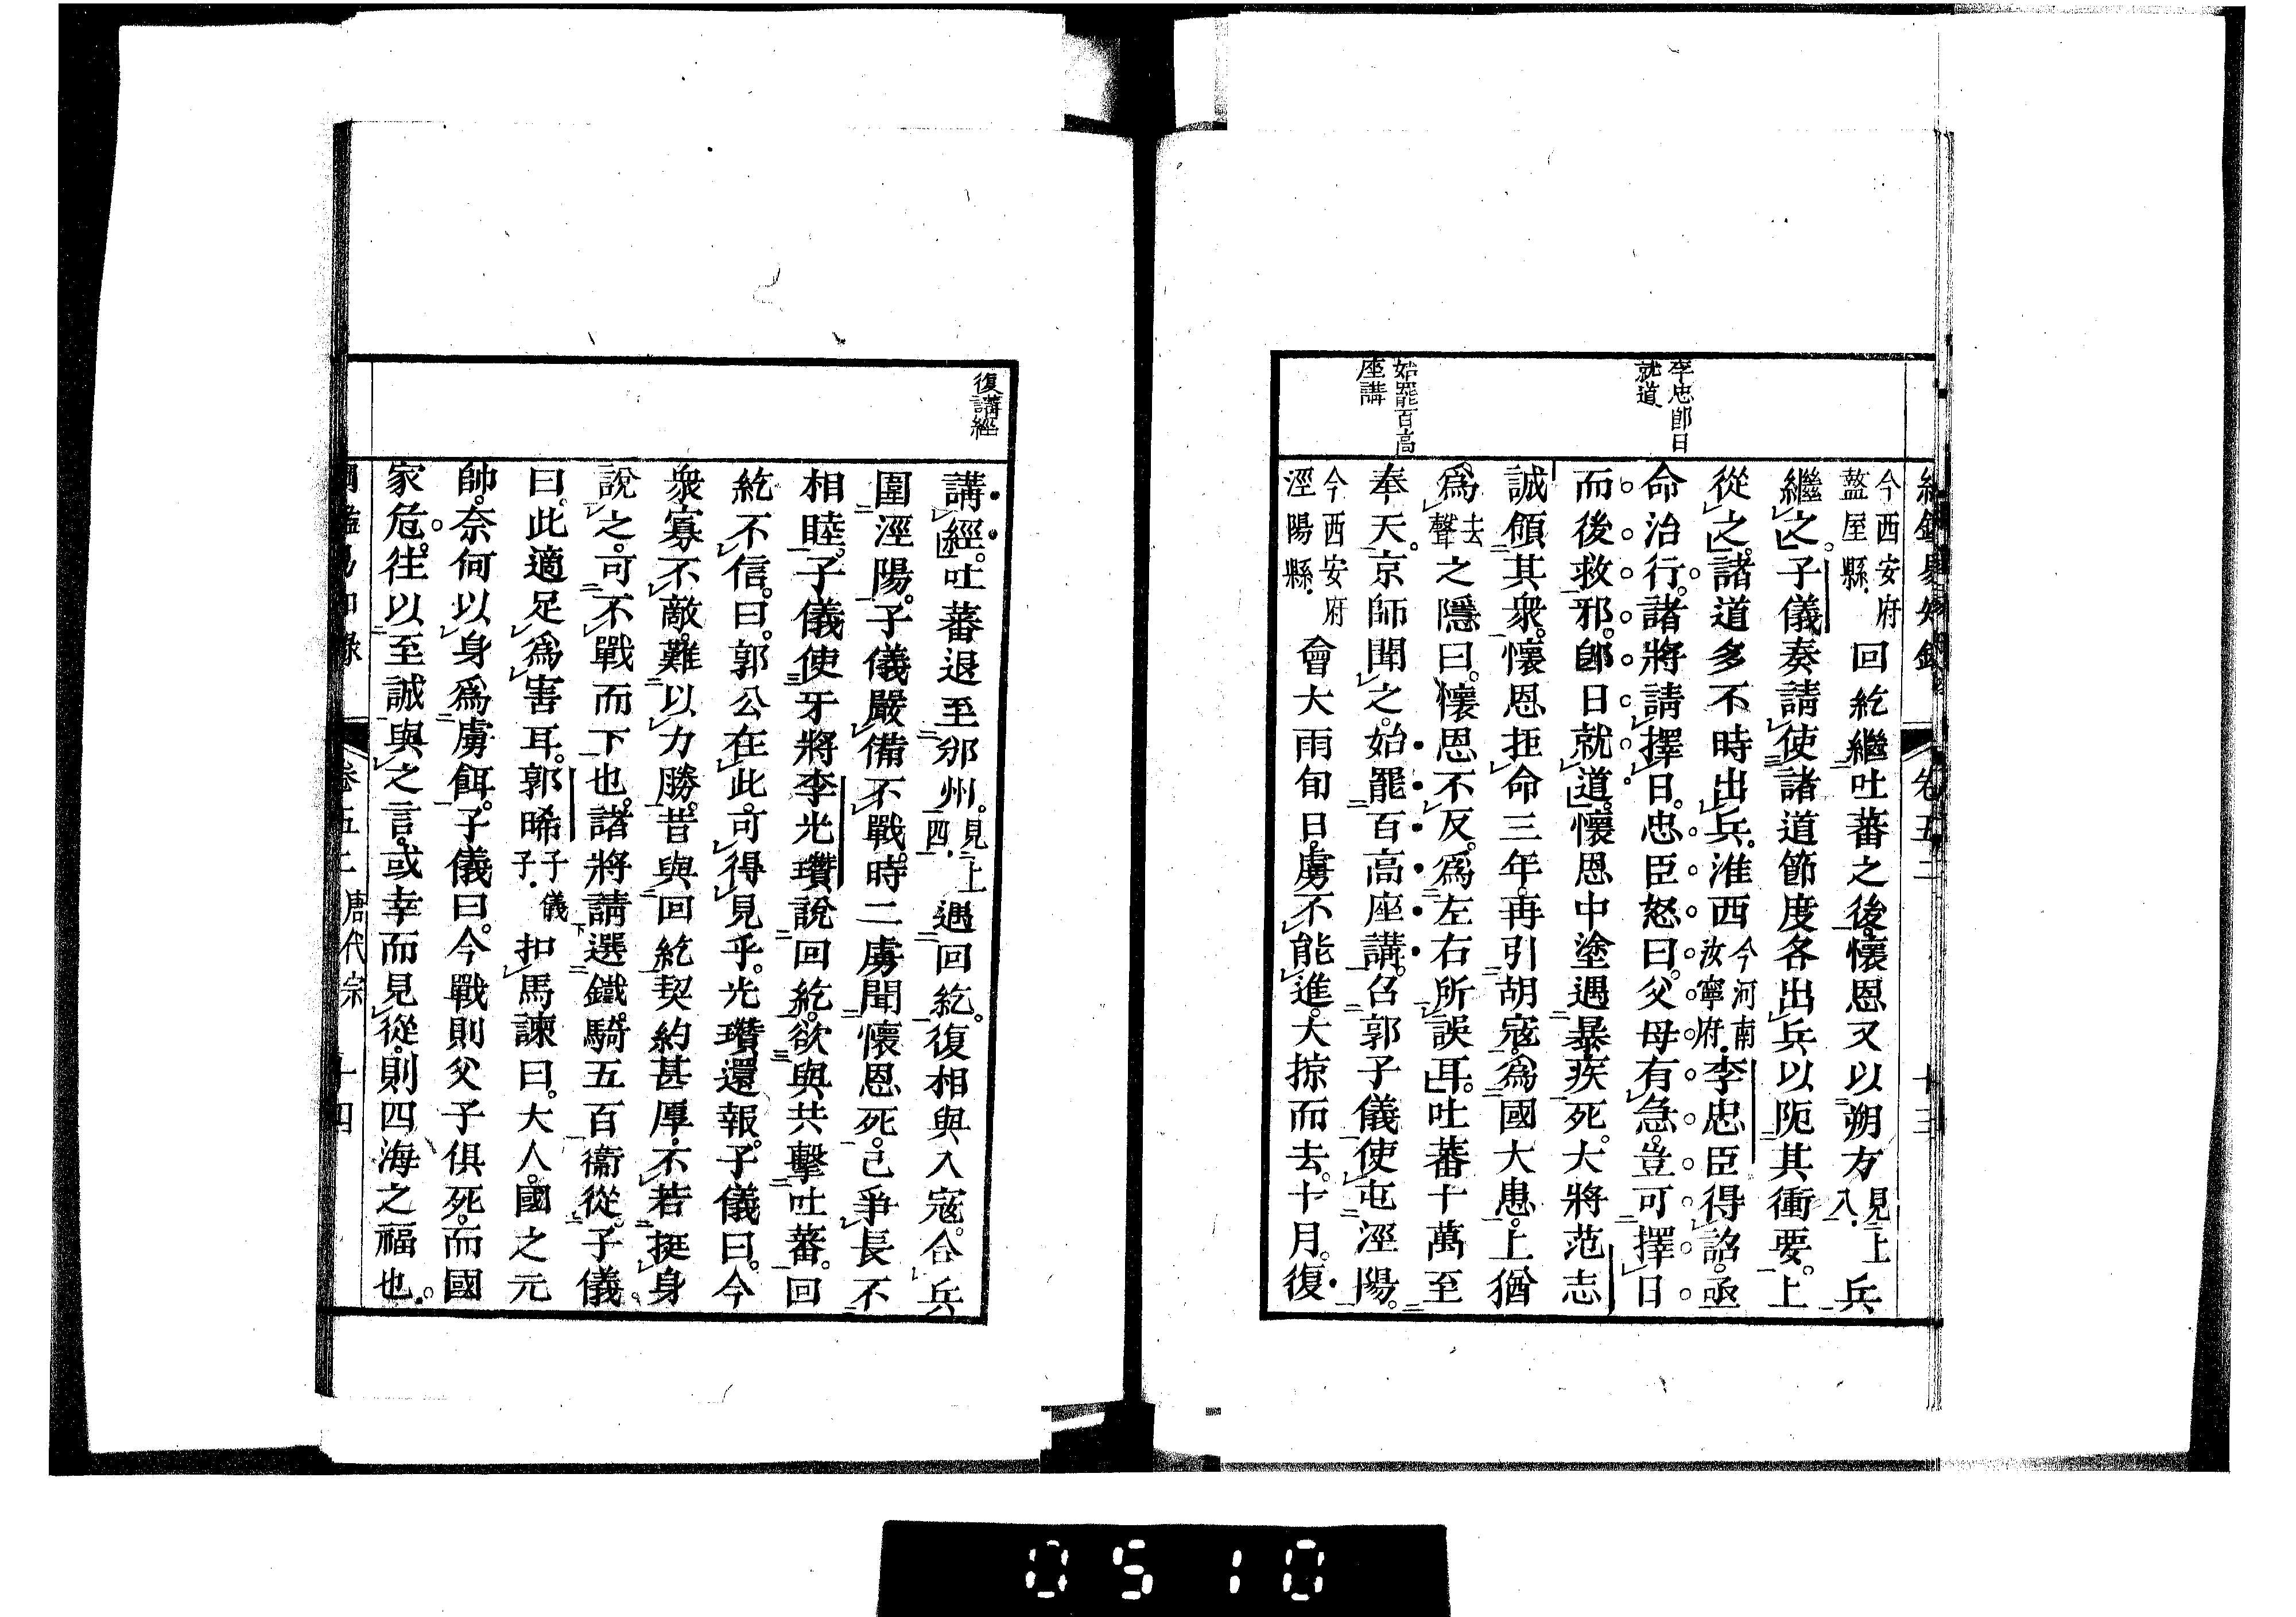 卷五二 十三
李忠卽日
就道
始罷百高
座講
今西安府
盩厔縣.回紇繼吐蕃之後。懷恩又以朔方見上八.兵
繼之。子儀奏請使諸道節度各出兵以阨其衝要。上
從之。諸道多不時出兵。淮西今河南汝寧府.李忠臣得詔。亟
命治行。諸將請擇日。忠臣怒曰。父母有急。豈可擇日
而後救邪。卽日就道。懷恩中塗遇暴疾死。大將范志
誠領其衆。懷恩拒命三年。再引胡寇。爲國大患。上猶
爲去聲之隱曰。懷恩不反。爲左右所誤耳。吐蕃十萬至
奉天。京師聞之。始罷百高座講。召郭子儀使屯涇陽。
今西安府
涇陽縣.會大雨旬日。虜不能進。大掠而去。十月。復
復講經
講經。吐蕃退至邠州。見上四.遇回紇。復相與入寇。合兵
圍涇陽。子儀嚴備不戰。時二虜聞懷恩死。已爭長不
相睦。子儀使牙將李光瓚說回紇。欲與共擊吐蕃。回
紇不信。曰。郭公在此。可得見乎。光瓚還報。子儀曰。今
衆寡不敵。難以力勝。昔與回紇契約甚厚。不若挺身
說之。可不戰而下也。諸將請選鐵騎五百衞從。子儀
曰。此適足爲害耳。郭晞子儀子.扣馬諫曰。大人。國之元
帥。奈何以身爲虜餌。子儀曰。今戰則父子俱死。而國
家危。往以至誠與之言。或幸而見從。則四海之福也。
綱鑑易知錄 卷五二 唐代宗 十四
0510